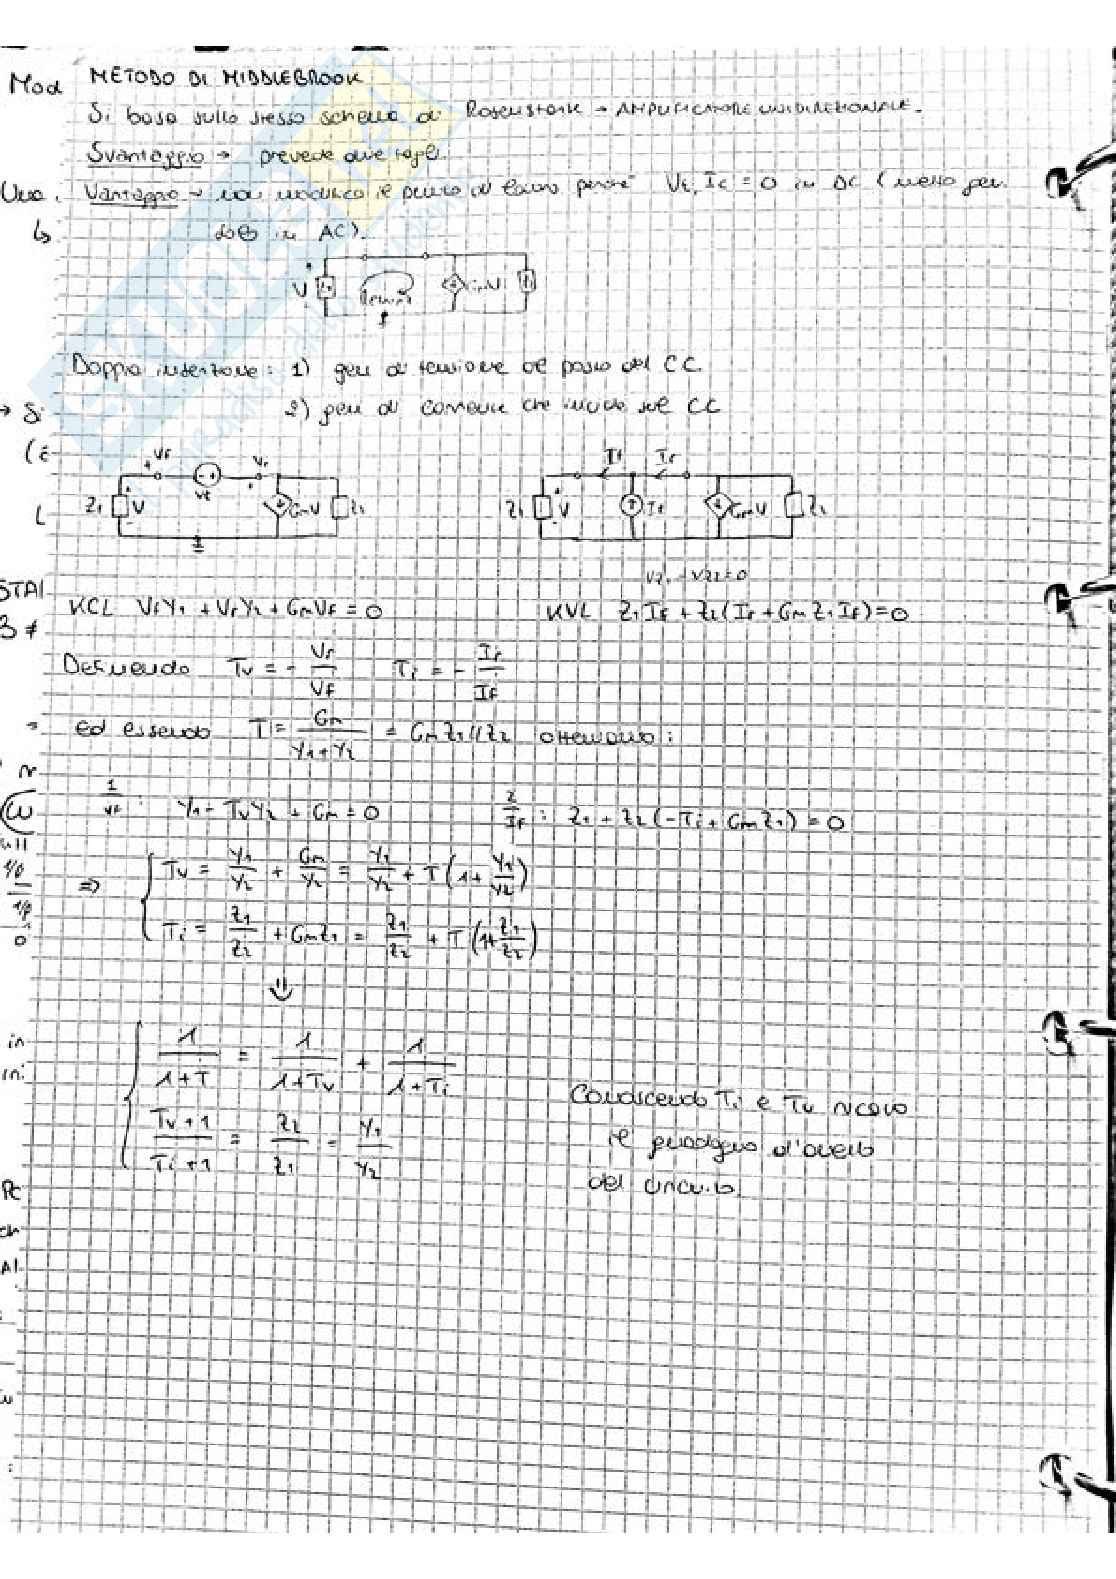 Mod
METODO DI MIDDLEBROOK
Si basa sullo stesso schema di Rosenstark → AMPLIFICATORE UNIDIREZIONALE.
Svantaggio → prevede due tagli.
Vantaggio → non modifico il punto di lavoro perché Vt, It = 0 in DC (metto gen.
solo in AC).
V
GmV
Doppia inserzione: 1) gen di tensione al posto del CC
2) gen di corrente che incide sul CC
Vf Vr If Ir
Z1 V Vt GmV Z2 Z1 V It GmV Z2
VZ1 - VZ2 = 0
KCL VfY1 + VrY2 + GmVf = 0 KVL Z1If + Z2(Ir + GmZ1If) = 0
Definendo Tv = - Vr/Vf Ti = - Ir/If
Ed essendo T = Gm/(Y1+Y2) = GmZ1//Z2 otteniamo:
1/Vf : Y1 - TvY2 + Gm = 0 2/If : Z1 + Z2(-Ti + GmZ1) = 0
⇒ { Tv = Y1/Y2 + Gm/Y2 = Y1/Y2 + T(1 + Y1/Y2)
Ti = Z1/Z2 + GmZ1 = Z1/Z2 + T(1+Z1/Z2)
⇓
{ 1/(1+T) = 1/(1+Tv) + 1/(1+Ti)
(Tv+1)/(Ti+1) = Z2/Z1 = Y1/Y2
Conoscendo Ti e Tv ricavo
il guadagno d'anello
del circuito.